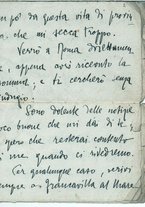 un po' da questa vita di provin-
cia, che mi secca troppo.
Verrò a Roma direttamen-
te, appena avrò ricevuto la
e ti cercherò senza
indugio.
Sono dolente delle notizie
poco buone che mi dai di te,
spero che resterai contento
di me, quando ci rivedremo.
Per qualunque caso, scrivi
sempre a Francavilla al Mare